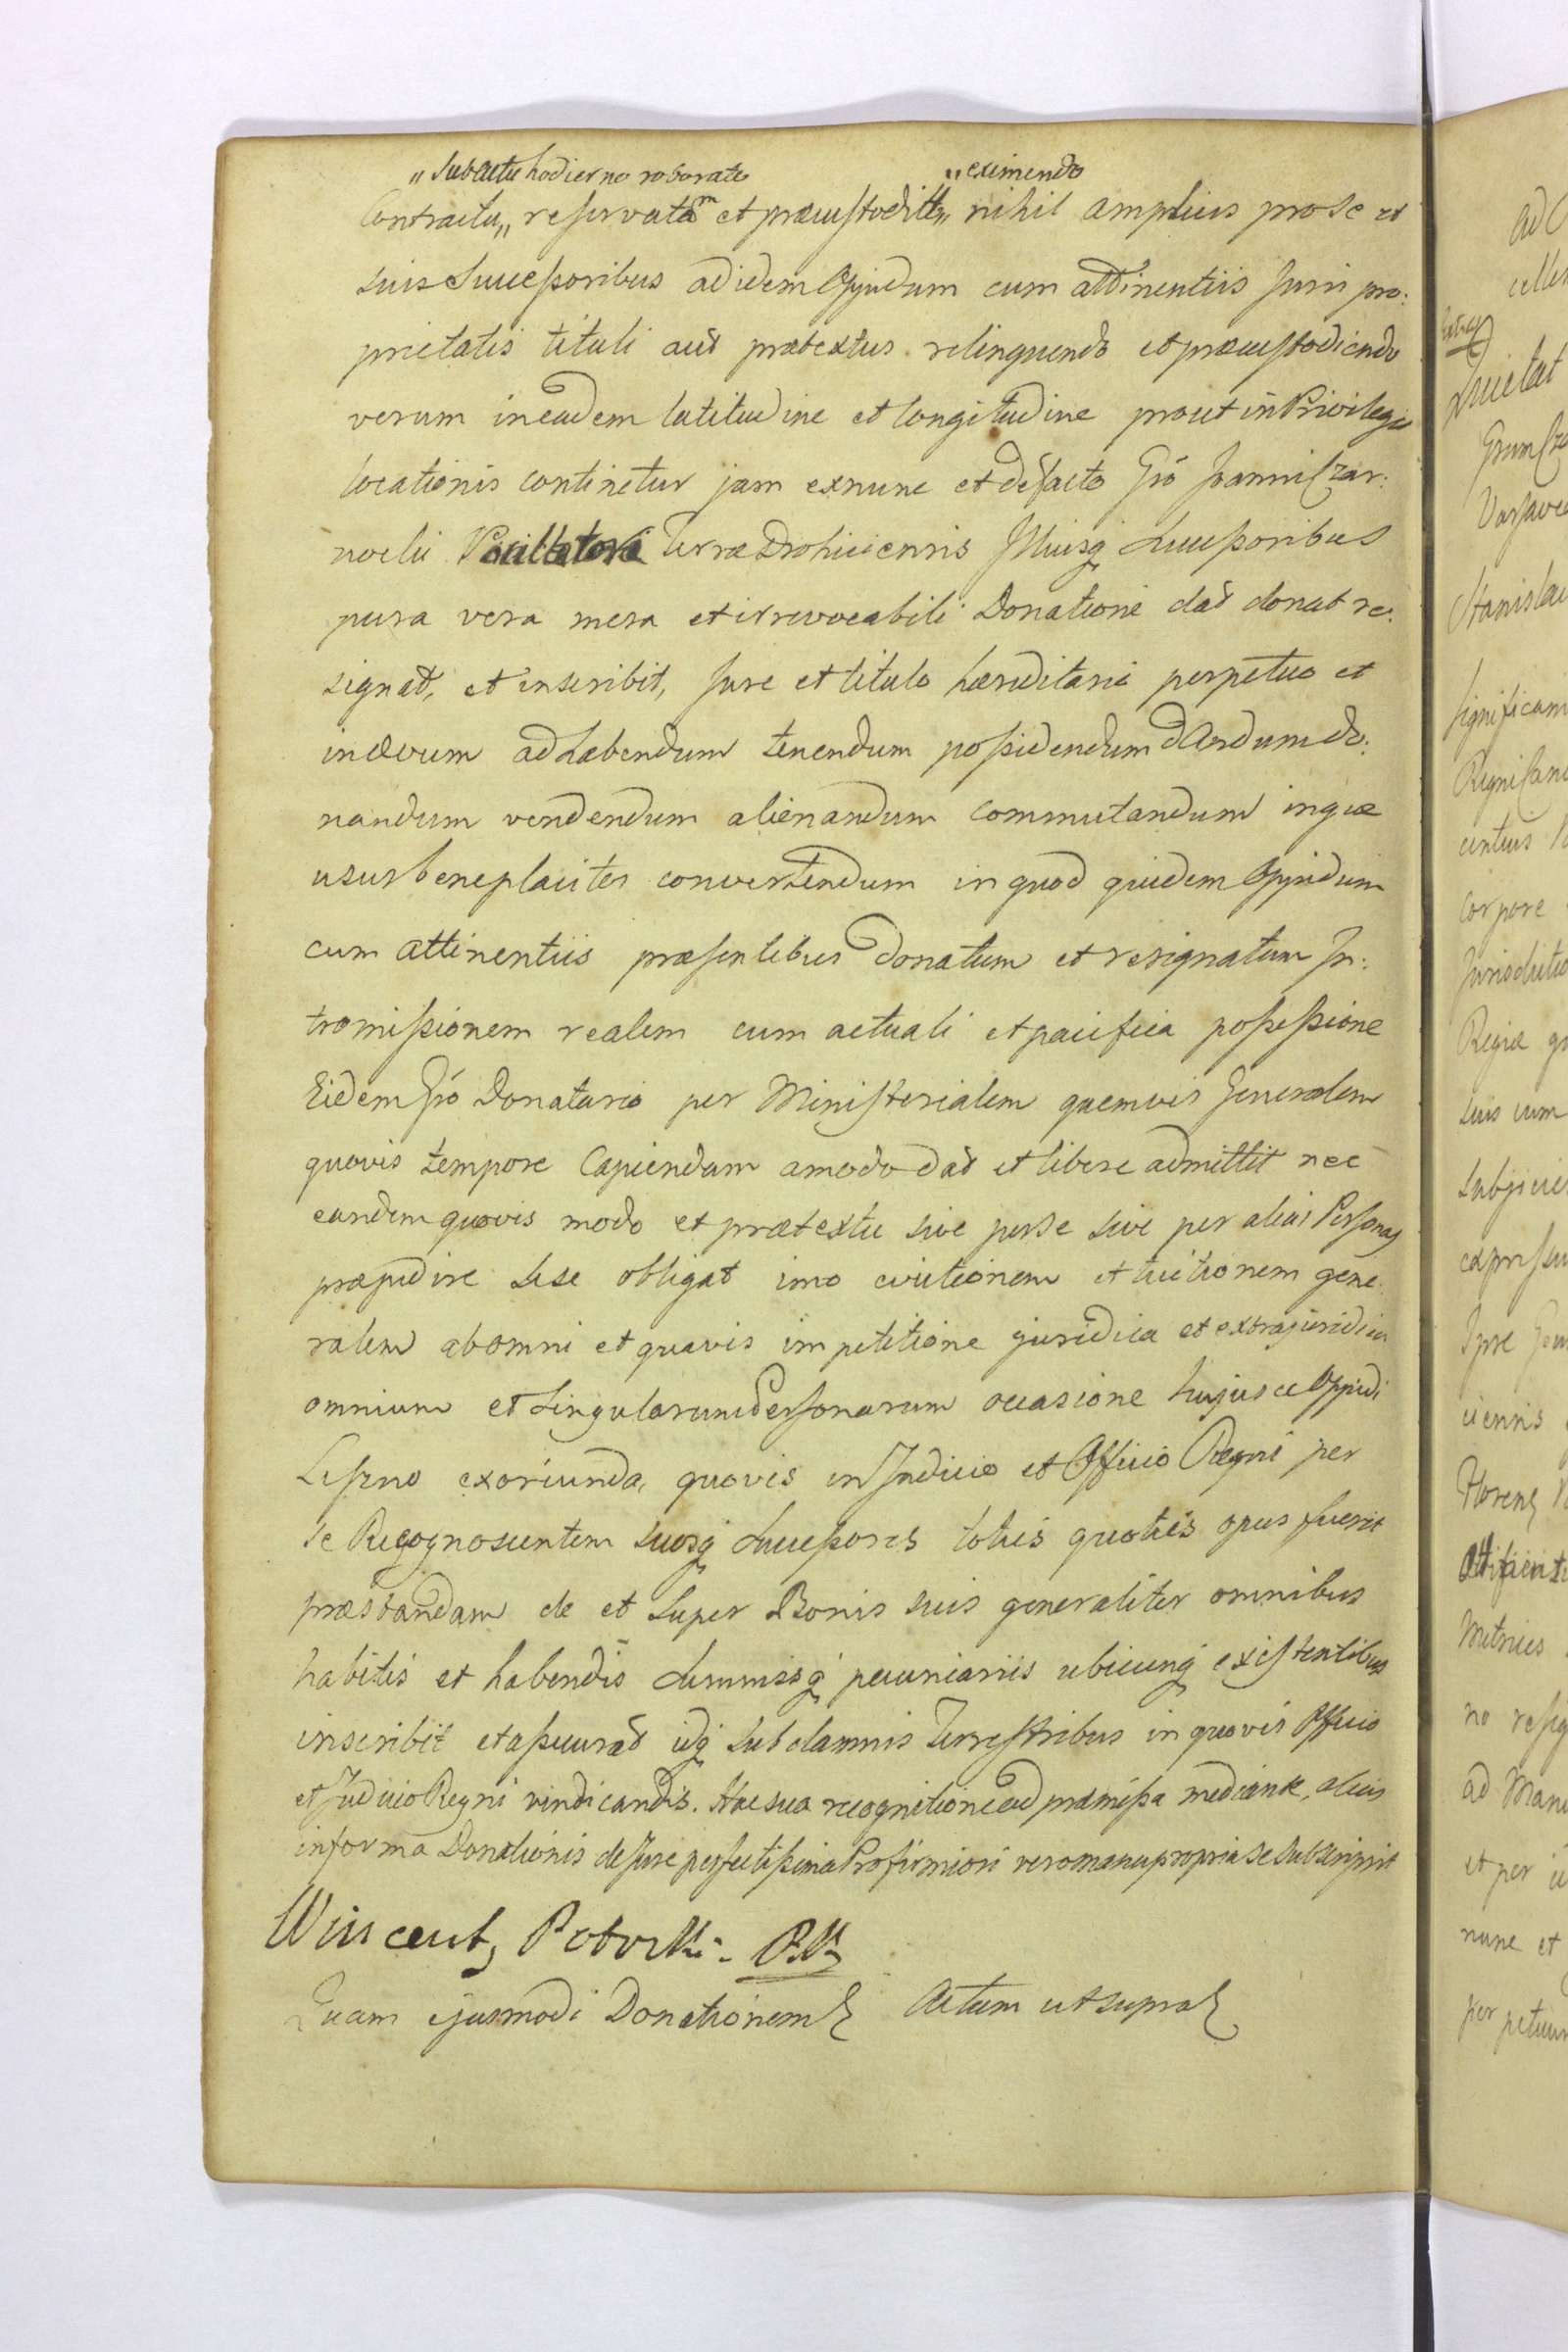 „Sub actu hodierno roborato „eximendo
Contractu„ reservatam et præcustoditt„ nihil amplius pro se et
suis Successoribus ad idem Oppidum cum attinentiis Juris pro:
prietatis tituli aut prætextus relinquendo et præcustodiendo
verum in eadem latitudine et longitudine prout in Privilegio
locationis continetur jam ex nunc et de facto Gro Joanni Czar:
nocki Terræ Drohiciensis Illiusq Successoribus
pura vera mera et irrevocabili Donatione dat donat re:
signat, et inscribit, Jure et titulo hæreditario perpetuo et
in ævum ad habendum tenendum possidendum dandum do:
nandum vendendum alienandum commutandum inquæ
usus beneplacitos convertendum in quod quidem Oppidum
cum attinentiis præsentibus donatum et resignatum In:
tromissionem realem cum actuali et pacifica possessione
Eidem Gro Donatario per Ministerialem quemvis Generalem
quovis tempore Capiendam amodo dat et libere admittit nec
eandem quovis modo et prætextu sive per se sive per alias Personas
præpedire sese obligat imo evictionem et tuitionem gene:
ralem ab omni et quavis impetitione juridica et extrajuridica
omnium et Singularum Personarum occasione hujusce Oppidi
exoriunda, quovis in Judicio et Officio Regni per
se Recognoscentem suosq Successores toties quoties opus fuerit
præstandam de et super Bonis suis generaliter omnibus
habitis et habendis Summisq pecuniariis ubicunq existentibus
inscribit et assecurat idq sub damnis Terrestribus in quovis Officio
et Judicio Regni vindicandis. Hac sua recognitione ad præmissa mediante, alias
in forma Donationis de Jure perfectissima Pro firmiori vero manu propria se subscripsit
Wincenty Potocki. PK
Quam ejusmodi Donationem Actum ut supra